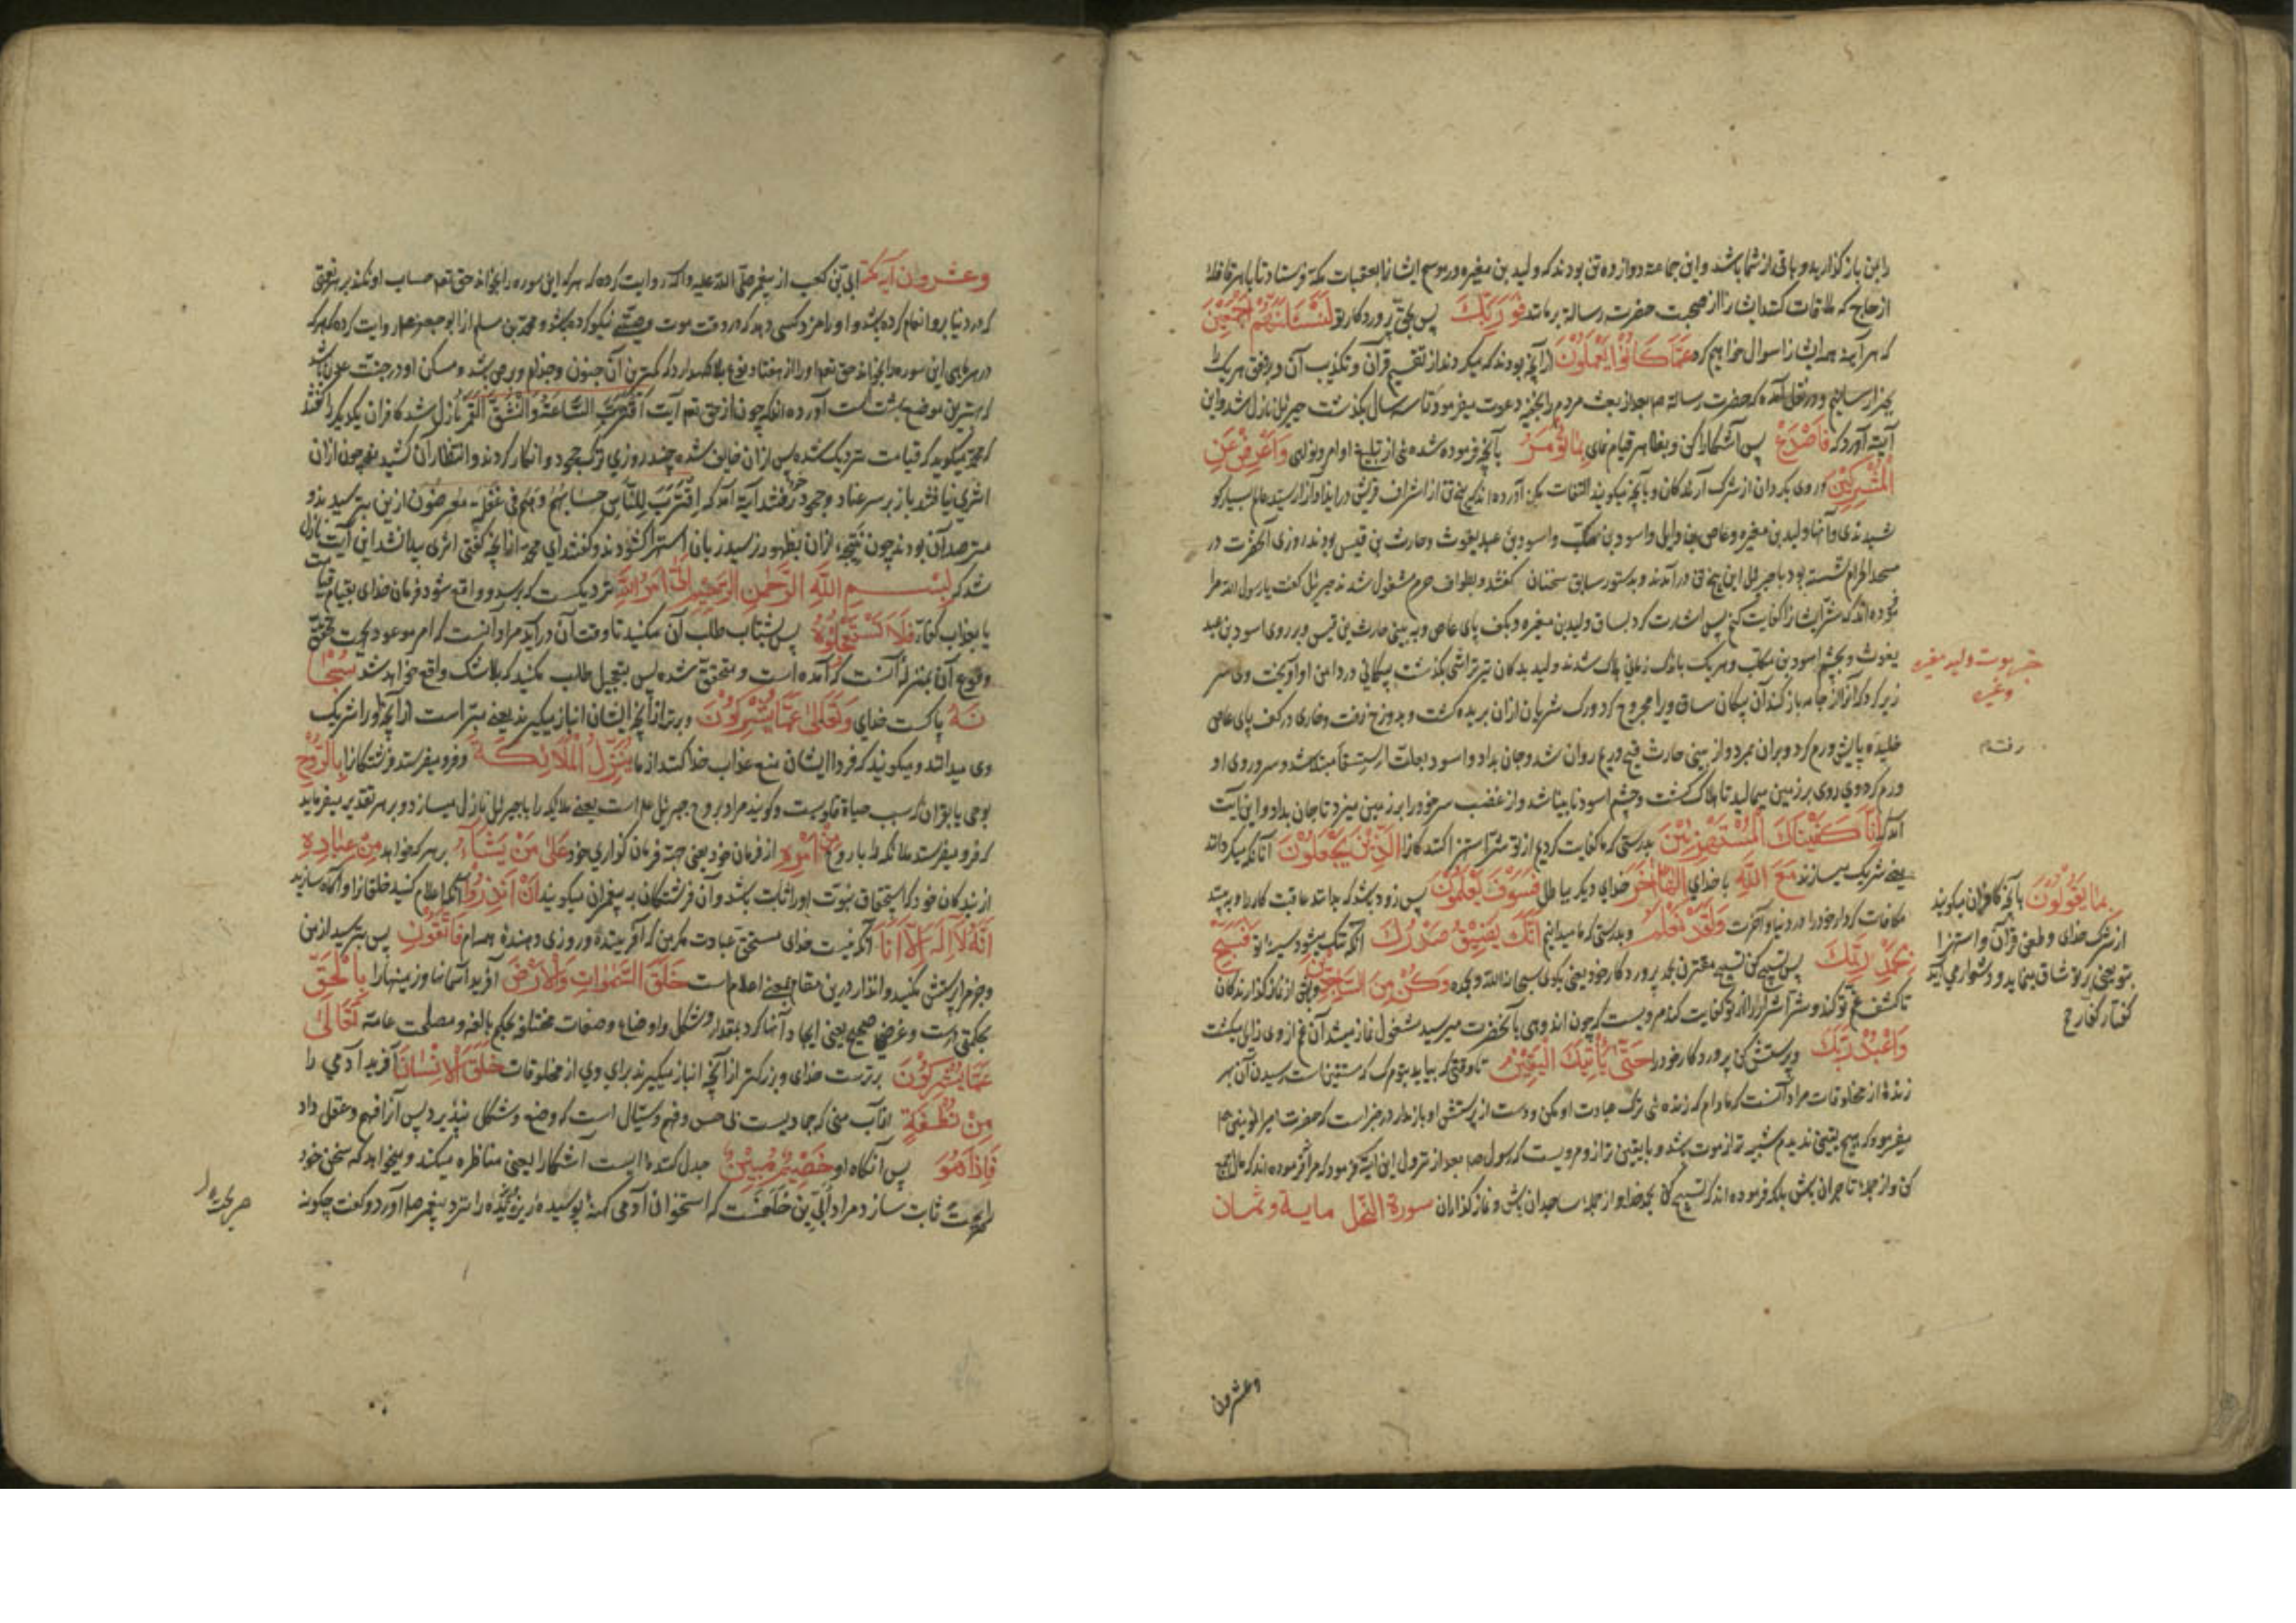 را بن باز گذارید و باقی از شما باشد و این جماعه دوازده تن بودند که ولید بن مغیره در موسم ایشانرا بعقبات مکه فرستاد تا با هر قافلهٔ
از حاج که ملاقات کنند ایشانرا از صحبت حضرت رسالة برمانند فَوَرَبِّكَ پس بحق پروردکار تو لَنَسْئَلَنَّهُمْ اَجْمَعِیْنَ
که هر آینه همه ایشانرا سوال خواهیم کرد عَمَّا كَانُوْا يَعْمَلُوْنَ از آنچه بودند که میکردند از تقسیم قرآن و تکذیب آن و بر وفق هر یک را
جزا رسانیم و در نقل آمده که حضرت رسالة صم بعد از بعث مردم را بخفیه دعوت میفرمود تا سه سال بگذشت جبرئیل نازل شد و این
آیت آورد که فَاصْدَعْ پس آشکارا کن و بظاهر قیام نمای بِمَا تُؤْمَرُ بآنچه فرموده شده‌ٔ از تبلیغ اوامر و نواهی وَاَعْرِضْ عَنِ
الْمُشْرِكِیْنَ و روی بکردان از شرک آرندکان و بآنچه میکویند التفات مکن آورده اند که پنج تن از اشراف قریش در ایذا و آزار سید عالم بسیار کو
شیدندی و آنها ولید بن مغیره و عاص بن وایل و اسود بن مطلب و اسود بن عبد یغوث و حارث بن قیس بودند روزی آنحضرت در
مسجد الحرام نشسته بود با جبرئیل این پنج تن در آمدند و بدستور سابق سخنان گفتند و بطواف حرم مشغول شدند جبرئیل گفت یا رسول الله مرا
فرموده اند که شر ایشانرا کفایت کنم پس اشارت کرد بساق ولید بن مغیره و بکف پای عاص و به بینی حارث بن قیس و بر روی اسود بن عبد
یغوث و بچشم اسود بن مطلب و هر یک باندک زمانی هلاک شدند ولید بدکان تیر تراشی بگذشت پیکانی در دامن او آویخت وی سر
زیر کرد که آنرا از جامه باز کند آن پیکان ساق ویرا مجروح کرد و رک شریان ازان بریده کشت و بدوزخ رفت و خاری در کف پای عاص
خلیده پایش ورم کرد و بران بمرد و از بینی حارث قیح و ریم روان شد و جان بداد و اسود بعلت استسقا مبتلا شد و سر و روی او
ورم کرده وی روی بر زمین میمالید تا هلاک کشت و چشم اسود نابینا شد و از غضب سر خود را بر زمین میزد تا جان بداد و این آیت
آمد که اِنَّا كَفَیْنٰكَ الْمُسْتَهْزِئِیْنَ بدرستی که ما کفایت کردیم از تو شر استهزا کنندکانرا الَّذِیْنَ یَجْعَلُوْنَ آنانکه میکردانند
یعنی شریک میسازند مَعَ اللّٰهِ با خدای اِلٰهًا اٰخَرَ خدای دیکر بباطل فَسَوْفَ یَعْلَمُوْنَ پس زود باشد که بدانند عاقبت کار را و به بینند
مکافات کردار خود را در دنیا و آخرت وَلَقَدْ نَعْلَمُ و بدرستی که ما میدانیم اَنَّكَ یَضِیْقُ صَدْرُكَ آنکه تنک میشود سینهٔ تو فَسَبِّحْ
بِحَمْدِ رَبِّكَ پس تسبیح کن تسبیح مقترن بحمد پروردکار خود یعنی بکوی سبحان الله و بحمده وَكُنْ مِنَ السّٰجِدِیْنَ و باش از نماز کذارندکان
تا کشف غم تو کند و شر اشرار را از تو کفایت کند مرویست که چون اندوهی بآنحضرت میرسید مشغول نماز میشد آن غم از وی زایل میکشت
وَاعْبُدْ رَبَّكَ و پرستش کن پروردکار خود را حَتّٰی یَأْتِیَكَ الْیَقِیْنُ تا وقتی که بیاید بتو مرک که متیقن است رسیدن آن بهر
زندهٔ از مخلوقات مراد آنست که مادام که زندهٔ ترک عبادت او مکن و دست از پرستش او باز ندار در خبر است که حضرت امیر المؤمنین
میفرمود که هیچ یقینی ندیدم شبیه تر از موت
کن و از جمله تاجران باش بلکه فرموده اند که تسبیح کن بحمد خدا و از جمله ساجدان باش و نماز کذاران سورة النحل مایة و ثمان
خبر موت ولید مغیره
وغیره
بِمَا یَقُوْلُوْنَ بآنچه کافران میکویند
از شرک خدای و طعن قرآن و استهزا
بتو یعنی بر تو شاق مینماید و دشوار می آید
کفتار کفار
وعشرون
وعشرون آیة ابی بن کعب از پیغمبر صلی الله علیه و آله روایت کرده که هر که این سوره را بخواند حق تعم حساب او نکند بر نعمتی
که در دنیا برو انعام کرده باشد و او را مزد کسی دهد که در وقت موت وصیت نیکو کرده باشد و محمد بن مسلم از ابو جعفر روایت کرده که هر که
در هر ماهی این سوره را بخواند حق تعم او را از هفتاد نوع بلا نکهدارد که کمترین آن جنون و جذام و برص باشد و مسکن او در جنت عدن باشد
که بهترین موضع بهشت است آورده اند که چون از حق تعم آیت اقتربت الساعة وانشق القمر نازل شد کافران یکدیکر را گفتند
که محمد میکوید که قیامت نزدیک شده پس ازان خایف شده چند روزی ترک جحود و انکار کردند و انتظار آن کشیدند چون ازان
اثری نیافتند باز بر سر عناد و جحود رفتند آیة آمد که اقترب للناس حسابهم وهم فی غفلة معرضون ازین بترسیدند و
مترصد آن بودند چون نتیجهٔ ازان بظهور نرسید زبان استهزا کشودند و گفتند ای محمد از آنچه کفتی اثری پیدا نشد این آیت نازل
شد که بِسْمِ اللّٰهِ الرَّحْمٰنِ الرَّحِیْمِ اَتٰی اَمْرُ اللّٰهِ نزدیکست که برسد و واقع شود فرمان خدای بقیام قیامت
یا بعذاب کفار فَلَا تَسْتَعْجِلُوْهُ پس بشتاب طلب آن مکنید تا وقت آن درآید مراد آنست که امر موعود بجهت تحقق
وقوع آن بمنزلهٔ آنست که آمده است و متحقق شده پس بتعجیل طلب مکنید که بلاشک واقع خواهد شد سُبْحٰا
نَهُ پاکست خدای وَتَعٰلٰی عَمَّا یُشْرِكُوْنَ و برتر از آنچه ایشان انباز میکیرند یعنی مبراست از آنچه او را شریک
وی میدانند و میکویند که فردا ایشان منع عذاب خدا کنند از ما یُنَزِّلُ الْمَلَائِكَةَ و فرو میفرستد فرشتکانرا بِالرُّوْحِ
بوحی یا بقران که سبب حیاة قلوبست و کویند مراد بروح جبرئیل است یعنی ملایکه را با جبرئیل نازل میسازد و بر هر تقدیر میفرماید
که فرو میفرستد ملائکه را با روح مِنْ اَمْرِهِ از فرمان خود یعنی جهة فرمان کذاری خود عَلٰی مَنْ یَشَآءُ بر هر که خواهد مِنْ عِبَادِهِ
از بندکان خود که استحقاق نبوت او را ثابت باشد و آن فرشتکان به پیغمبران میکویند اَنْ اَنْذِرُوْا آنکه اعلام کنید خلقانرا و آکاه سازید
اَنَّهُ لَا اِلٰهَ اِلَّا اَنَا آنکه نیست خدای مستحق عبادت مکر من که آفریننده و روزی دهندهٔ همه ام فَاتَّقُوْنِ پس بترسید از من
و جز مرا پرستش مکنید و انذار درین مقام بمعنی اعلام است خَلَقَ السَّمٰوَاتِ وَالْاَرْضَ آفرید آسمانها و زمینها را بِالْحَقِّ
بحکمتی راست و غرض صحیح یعنی ایجاد آنها کرد بمقدار و شکل و اوضاع و صفات مختلفه بحکم بالغه و مصلحت عامه تَعَالٰی
عَمَّا یُشْرِكُوْنَ برترست خدای و بزرکتر از آنچه انباز میکیرند برای وی از مخلوقات خَلَقَ الْاِنْسَانَ آفرید آدمی را
مِنْ نُطْفَةٍ از آب منی که جمادیست بی حس و فهم و سیال است که وضع و شکل نپذیرد پس آنرا فهم و عقل داد
فَاِذَا هُوَ پس آنکاه او خَصِیْمٌ مُبِیْنٌ جدل کننده ایست آشکارا یعنی مناظره میکند و میخواهد که سخن خود
را بحجت ثابت سازد مراد اُبی بن خلفست که استخوان آدمی کهنهٔ پوسیدهٔ ریزیده را نزد پیغمبر صم آورد و گفت چکونه